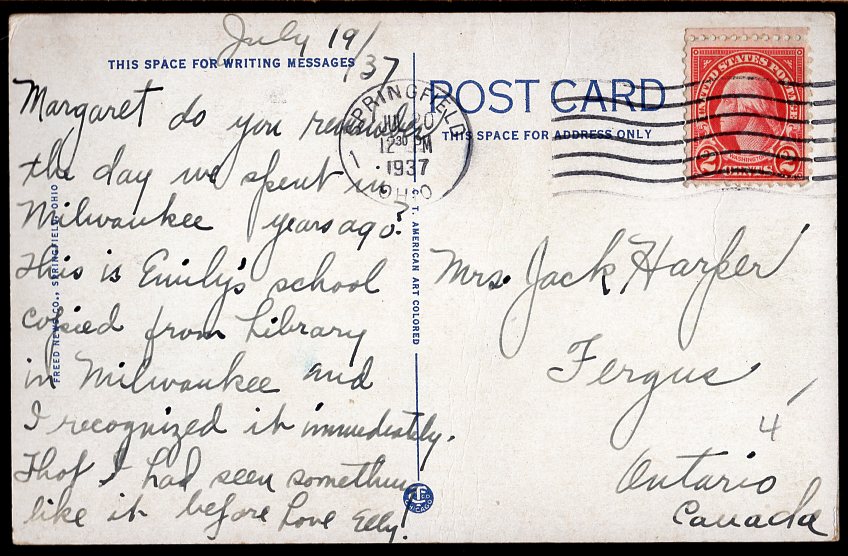 July 19/
THIS SPACE FOR WRITING MESSAGES
'37
Margaret do you remember
the day we spent in
Milwaukee years ago?
This is Emily's school
copied from Library
in Milwaukee and
I recognized it immediately.
Thot I had seen something
like it before Love Elly!
FREED NEWS CO., SPRINGFIELD, OHIO
C. T. AMERICAN ART COLORED
CHICAGO
POST CARD
THIS SPACE FOR ADDRESS ONLY
SPRINGFIELD
JUL 20
12 30 PM
1
1937
OHIO
UNITED STATES POSTAGE
WASHINGTON
2 CENTS 2
Mrs. Jack Harper
Fergus
4
Ontario
Canada